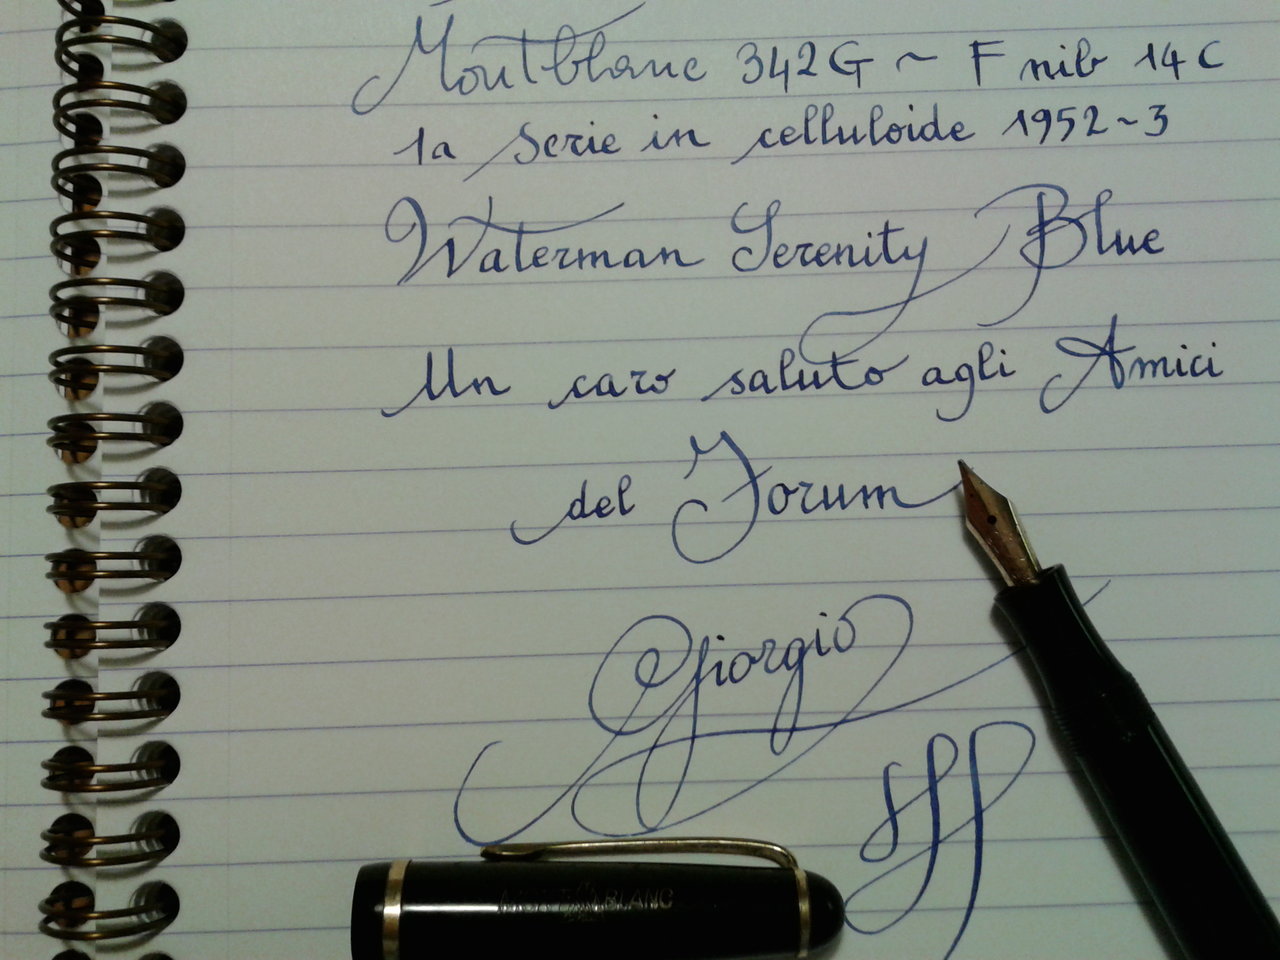 Montblanc 342G ~ F nib 14C
1a Serie in celluloide 1952~3
Waterman Serenity Blue
Un caro saluto agli Amici
del Forum
Giorgio
MONTBLANC